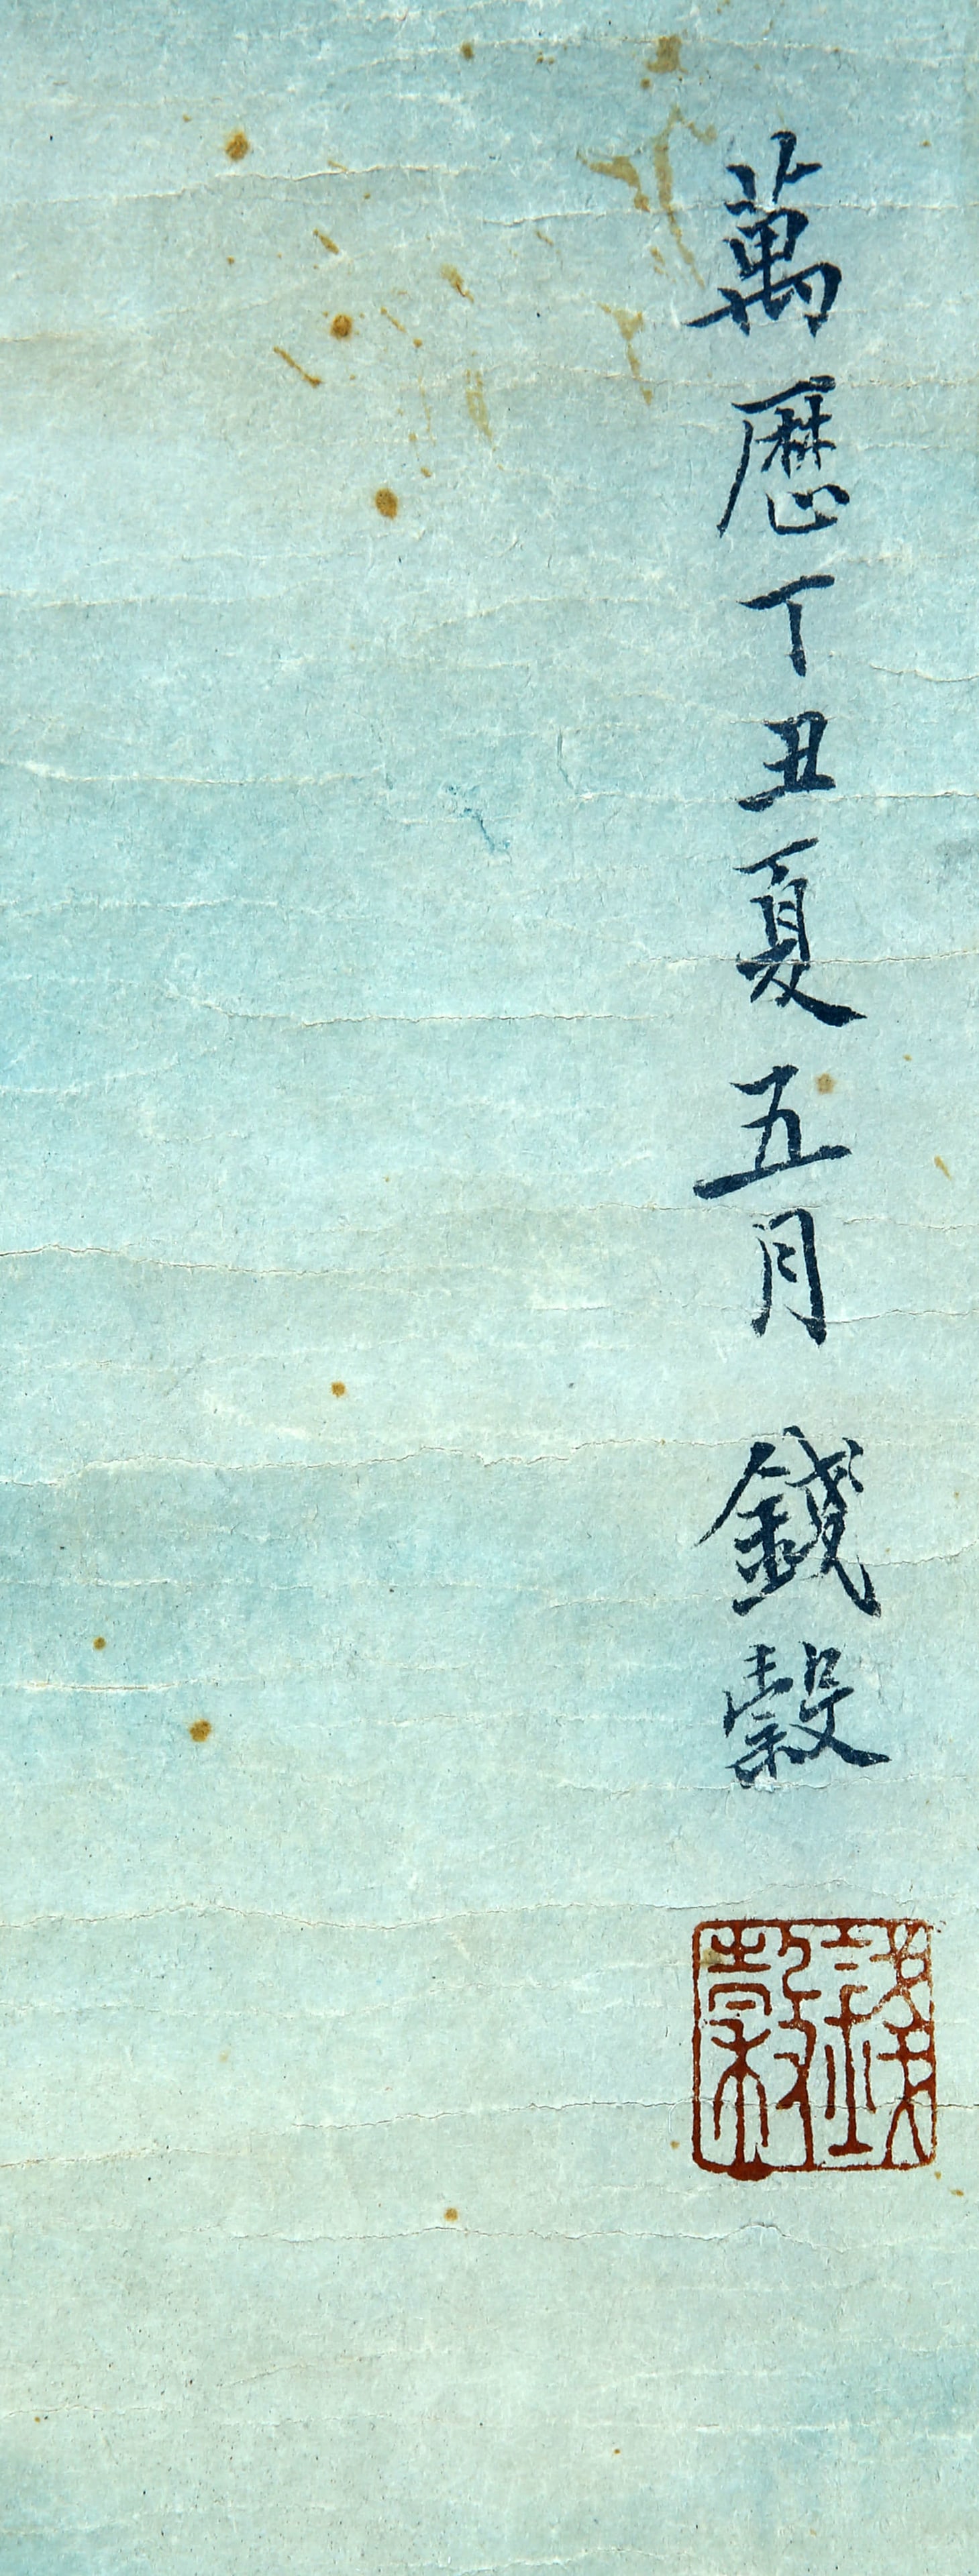 萬曆丁丑夏五月 錢穀
錢穀